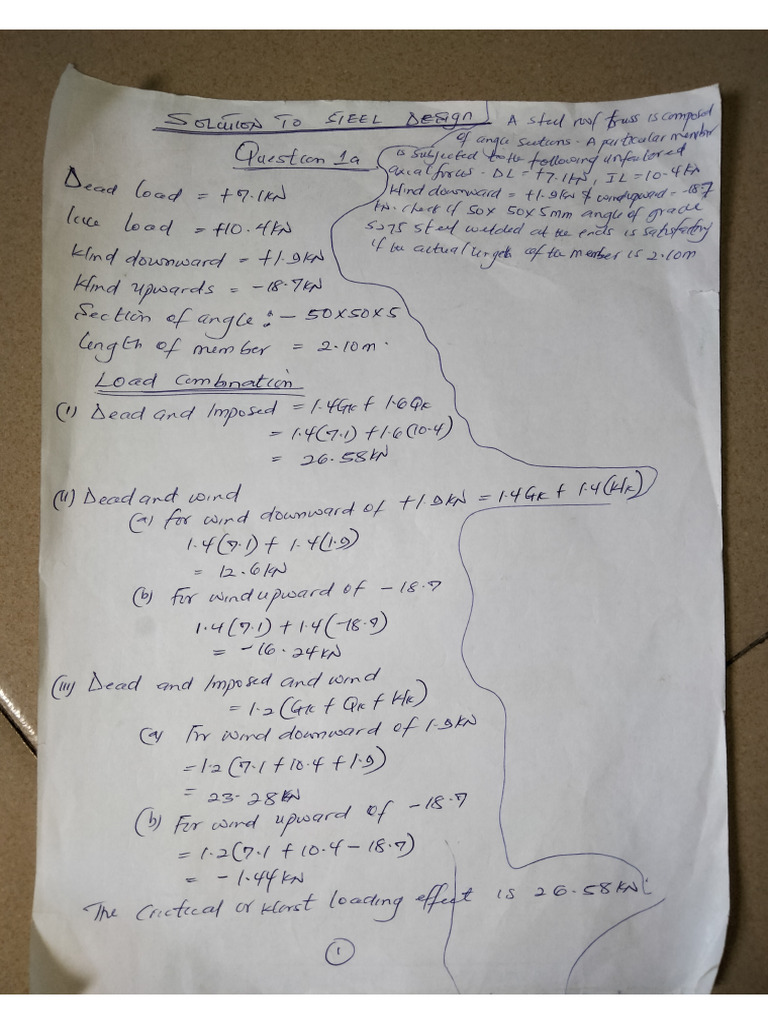 SOLUTION TO STEEL DESIGN
A steel roof truss is composed
of angle sections. A particular member
is subjected to the following unfactored
axial forces. DL = +7.1kN, IL = 10.4kN
Wind downward = +1.9kN & wind upward = -18.7
kN. check if 50x 50x5mm angle of grade
S275 steel welded at the ends is satisfactory
if the actual length of the member is 2.10m
Question 1a
Dead load = +7.1kN
live load = +10.4kN
Wind downward = +1.9kN
Wind upwards = -18.7kN
Section of angle :- 50x50x5
length of member = 2.10m.
Load Combination
(i) Dead and Imposed = 1.4Gk + 1.6Qk
= 1.4(7.1) + 1.6(10.4)
= 26.58kN
(ii) Dead and wind
(a) for wind downward of +1.9kN = 1.4Gk + 1.4(Wk)
1.4(7.1) + 1.4(1.9)
= 12.6kN
(b) For wind upward of -18.7
1.4(7.1) + 1.4(-18.7)
= -16.24kN
(iii) Dead and Imposed and wind
= 1.2(Gk + Qk + Wk)
(a) For wind downward of 1.9kN
= 1.2(7.1 + 10.4 + 1.9)
= 23.28kN
(b) For wind upward of -18.7
= 1.2(7.1 + 10.4 - 18.7)
= -1.44kN
The Critical or Worst loading effect is 26.58kN
1